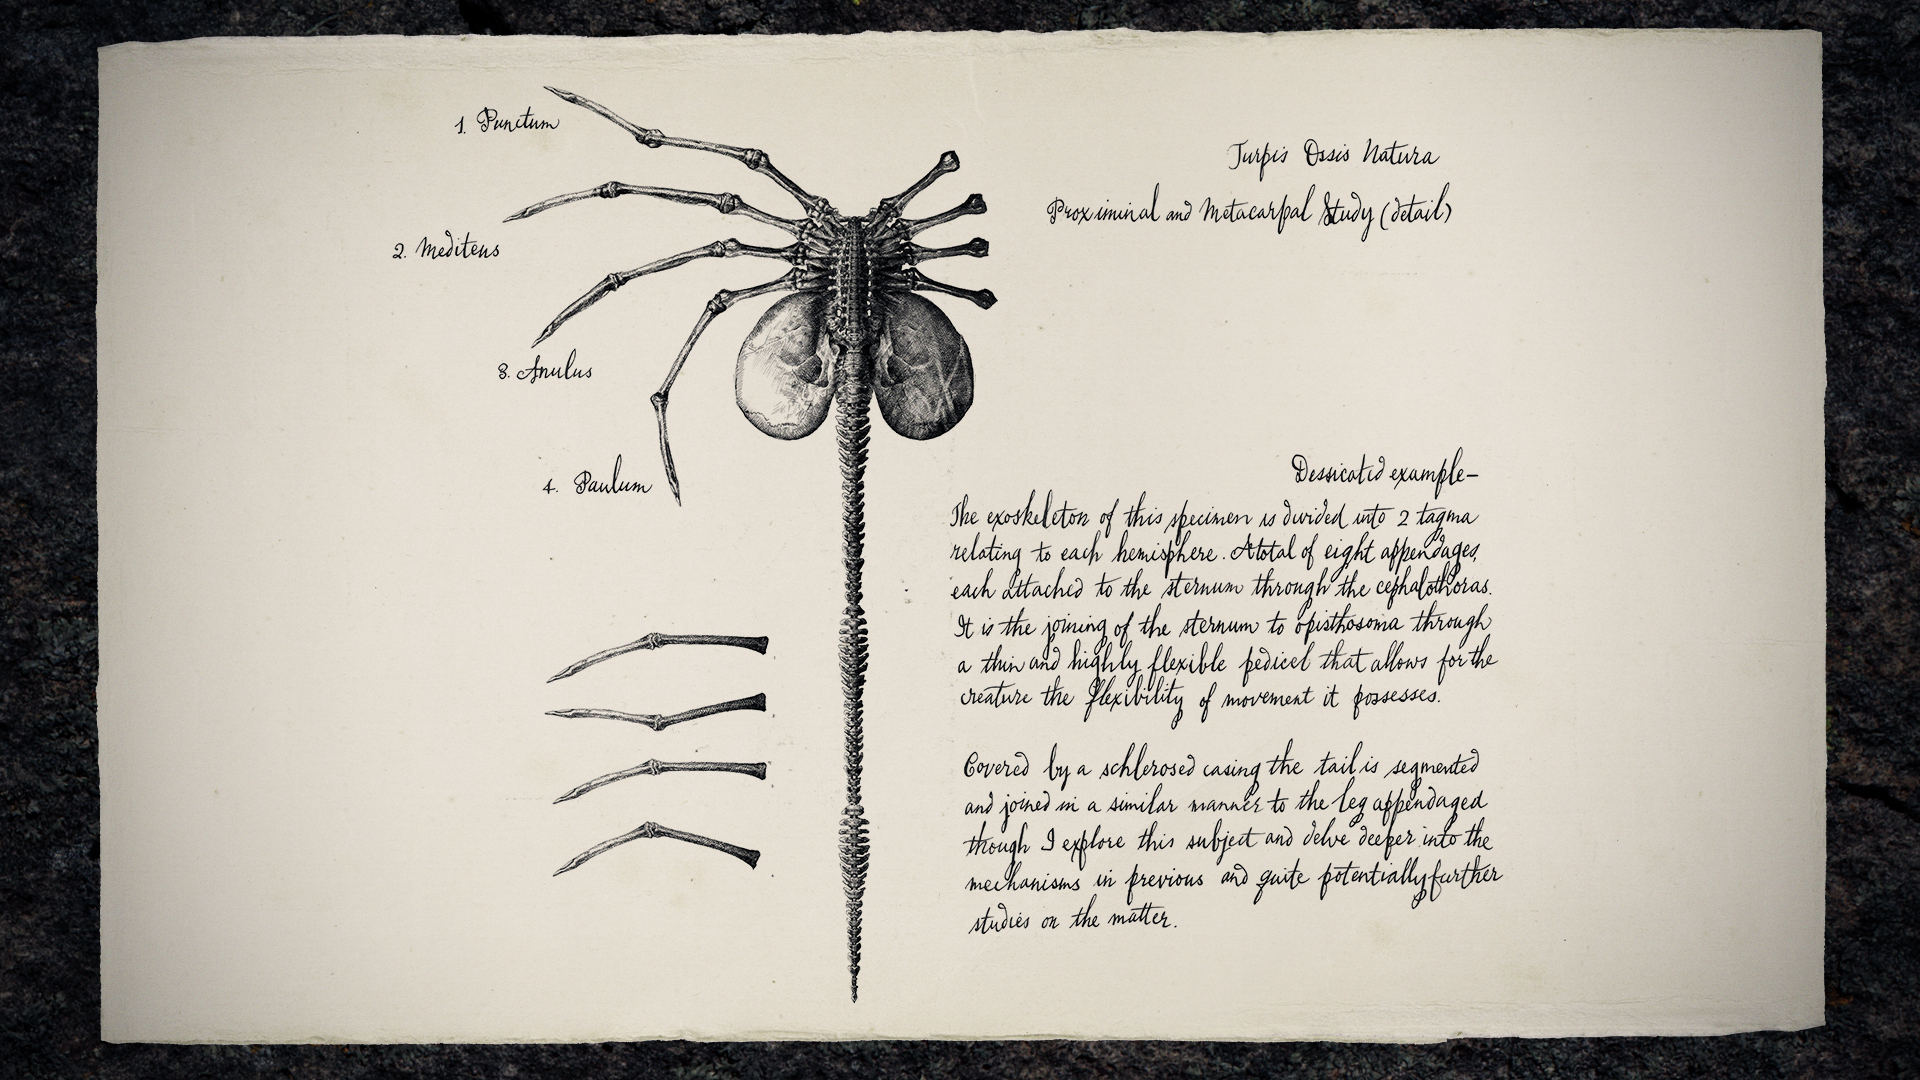 1. Punctum
2. Meditens
3. Anulus
4. Paulum
Turpis Ossis Natura
Proximinal and Metacarpal Study (detail)
Dessicated example-
The exoskeleton of this specimen is divided into 2 tagma
relating to each hemisphere. A total of eight appendages,
each attached to the sternum through the cephalothoras.
It is the joining of the sternum to opisthosoma through
a thin and highly flexible pedicel that allows for the
creature the flexibility of movement it possesses.
Covered by a schlerosed casing the tail is segmented
and joined in a similar manner to the leg appendaged
though I explore this subject and delve deeper into the
mechanisms in previous and quite potentially further
studies on the matter.